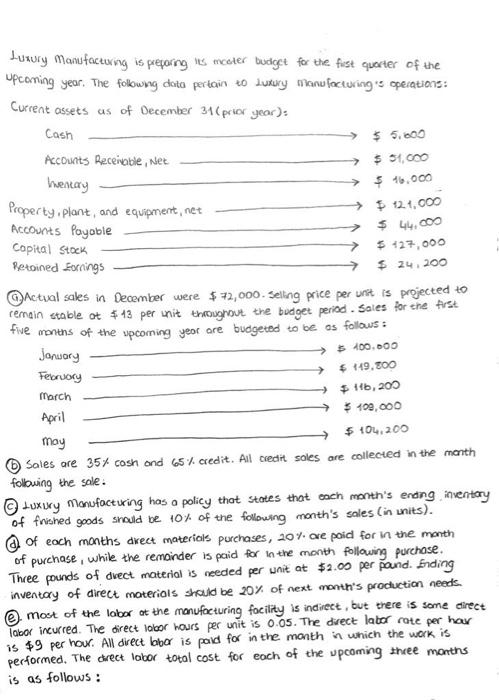 Luxury Manufacturing is preparing its master budget for the first quarter of the
upcoming year. The following data pertain to Luxury Manufacturing's operations:
Current assets as of December 31 (prior year):
Cash → $ 5,600
Accounts Receivable, Net → $ 51,000
Inventory → $ 16,000
Property, plant, and equipment, net → $ 121,000
Accounts Payable → $ 44,000
Capital Stock → $ 127,000
Retained Earnings → $ 24,200
(a) Actual sales in December were $72,000. Selling price per unit is projected to
remain stable at $13 per unit throughout the budget period. Sales for the first
five months of the upcoming year are budgeted to be as follows:
January → $ 100,000
February → $ 119,800
March → $ 116,200
April → $ 109,000
May → $ 104,200
(b) Sales are 35% cash and 65% credit. All credit sales are collected in the month
following the sale.
(c) Luxury Manufacturing has a policy that states that each month's ending inventory
of finished goods should be 10% of the following month's sales (in units).
(d) Of each months direct materials purchases, 20% are paid for in the month
of purchase, while the remainder is paid for in the month following purchase.
Three pounds of direct material is needed per unit at $2.00 per pound. Ending
inventory of direct materials should be 20% of next month's production needs.
(e) Most of the labor at the manufacturing facility is indirect, but there is some direct
labor incurred. The direct labor hours per unit is 0.05. The direct labor rate per hour
is $9 per hour. All direct labor is paid for in the month in which the work is
performed. The direct labor total cost for each of the upcoming three months
is as follows: